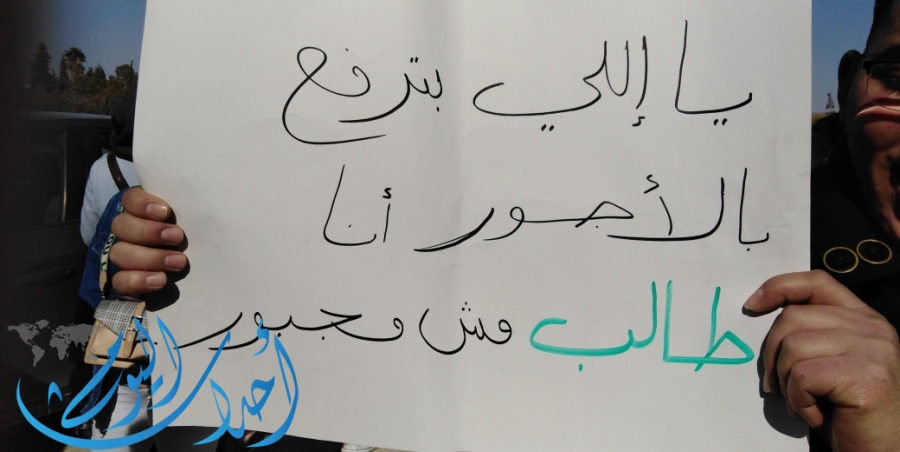 يا إللي بترفع
بالأجور أنا
طالب مش مجبور
أحداث اليوم